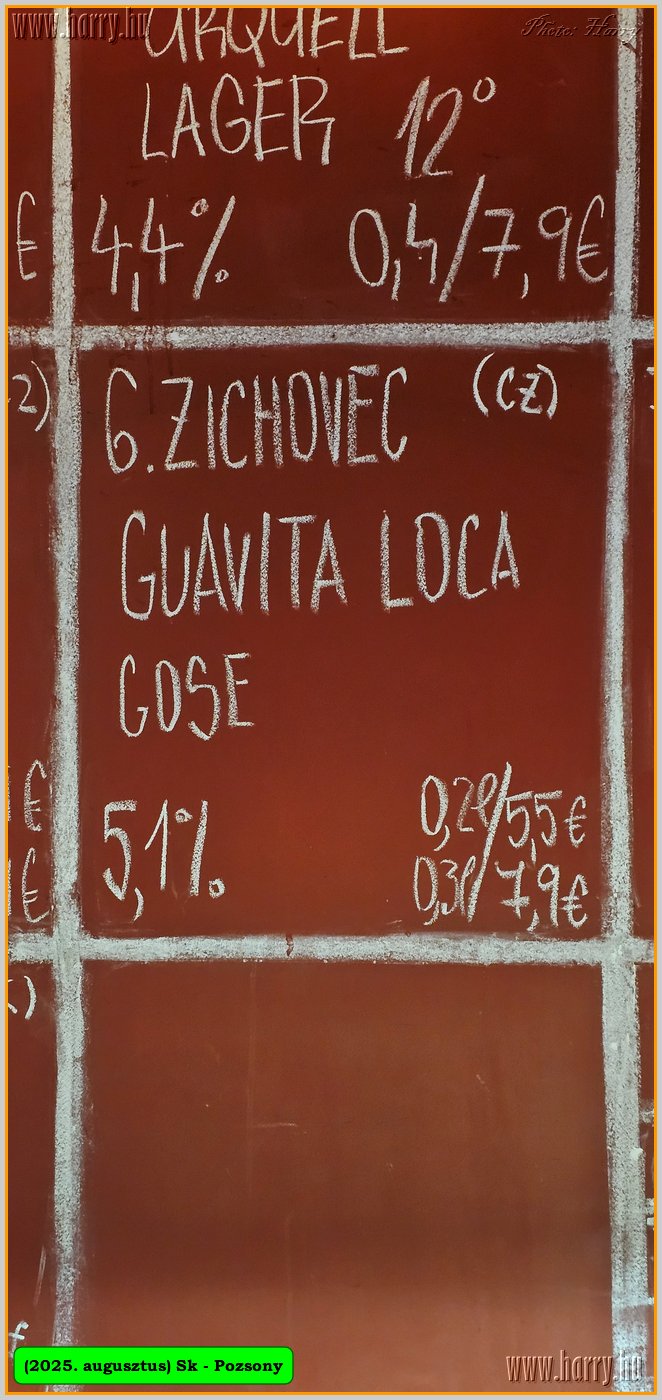 www.harry.hu
Photo: Harry
URQUELL
LAGER 12°
€ 4,4% 0,4/7,9€
2) 6.ZICHOVEC (CZ)
GUAVITA LOCA
GOSE
€ 0,2l/5,5€
5,1%
€ 0,3l/7,9€
)
(2025. augusztus) Sk - Pozsony
www.harry.hu